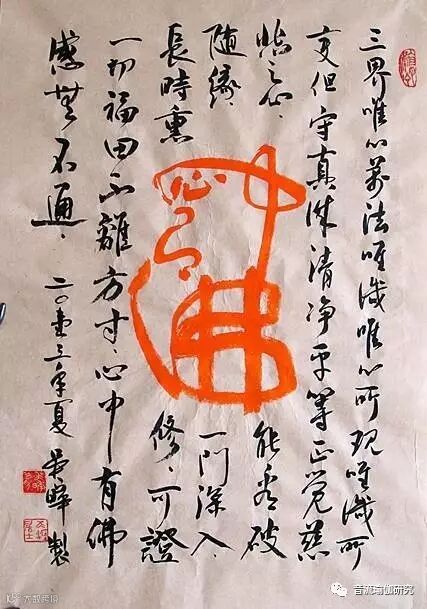 三界唯心萬法唯識唯心所現唯識所
變但守真誠清淨平等正覺慈
悲之心、能看破
隨緣、一門深入、
長時熏修、可證
一切福田不離方寸、心中有佛
感無不通、二〇壹三年夏
製
佛
心
大数跨境
音流瑜伽研究